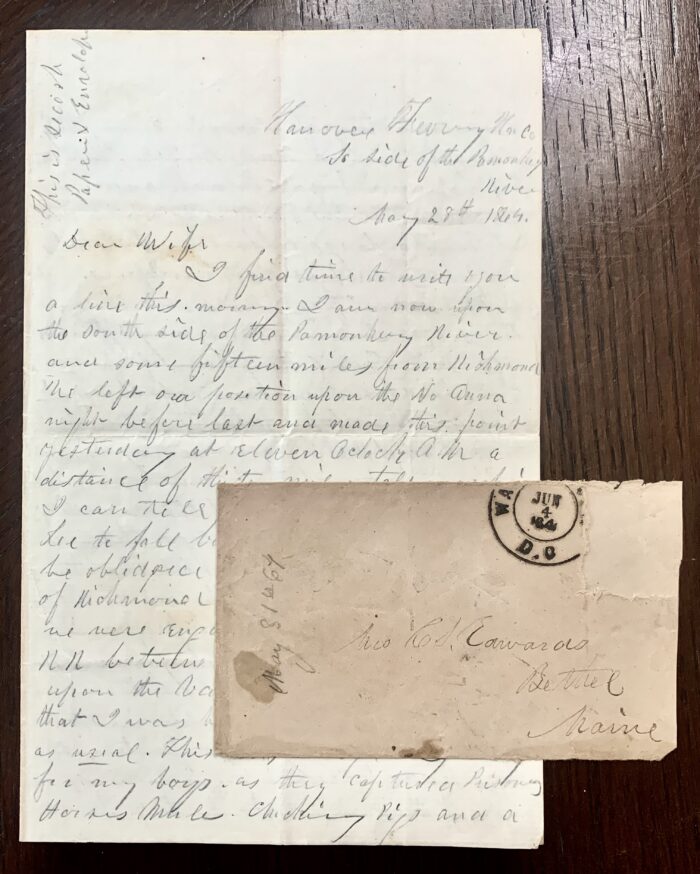 This is Secesh
Paper & Envelop
Hanover Ferry
So side of the Pamonkey
River
May 28th 1864.
Dear Wife
I find time to write you
a line this morning. I am now upon
the south side of the Pamonkey River.
and some fifteen miles from Richmond
We left our position upon the No Anna
night before last and made this point
yesterday at Eleven Oclock A M a
distance of
I can
Lee to fall
be
of Richmond
we were
RR between
upon the
that I was
as usual. This
for my boys. as they captured Prisoners
Horses Mule. Chickens Pigs and a
WA
JUN
4
D.C
May 31st 64
Edwards
Bethel
Maine